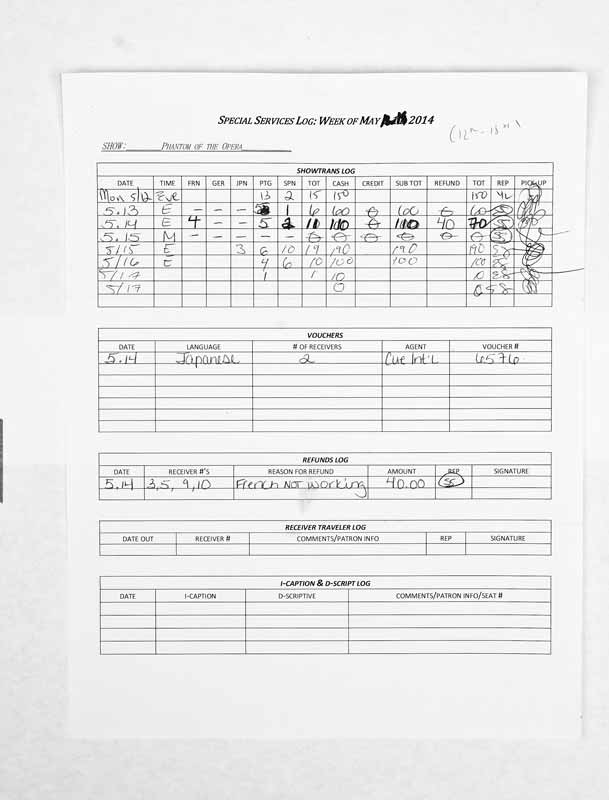 SPECIAL SERVICES LOG: WEEK OF MAY 2014
(12th - 18th)
SHOW: PHANTOM OF THE OPERA
SHOWTRANS LOG
DATE TIME FRN GER JPN PTG SPN TOT CASH CREDIT SUB TOT REFUND TOT REP PICK-UP
Mon 5/12 Eve 13 2 15 150 150 YL
5.13 E - - - 5 1 6 60 ⊖ 60 ⊖ 60 SS
5.14 E 4 - - 5 2 11 110 ⊖ 110 40 70 SS
5.15 M - - - - - ⊖ ⊖ ⊖ ⊖ ⊖ ⊖ SS
5/15 E 3 6 10 19 190 190 190 SS
5/16 E 4 6 10 100 100 100 SS
5/17 1 1 10 10 SS
5/17 0 0 SS
VOUCHERS
DATE LANGUAGE # OF RECEIVERS AGENT VOUCHER #
5.14 Japanese 2 Cue Int'l 6576
REFUNDS LOG
DATE RECEIVER #'S REASON FOR REFUND AMOUNT REP SIGNATURE
5.14 3,5, 9,10 French Not Working 40.00 SS
RECEIVER TRAVELER LOG
DATE OUT RECEIVER # COMMENTS/PATRON INFO REP SIGNATURE
I-CAPTION & D-SCRIPT LOG
DATE I-CAPTION D-SCRIPTIVE COMMENTS/PATRON INFO/SEAT #